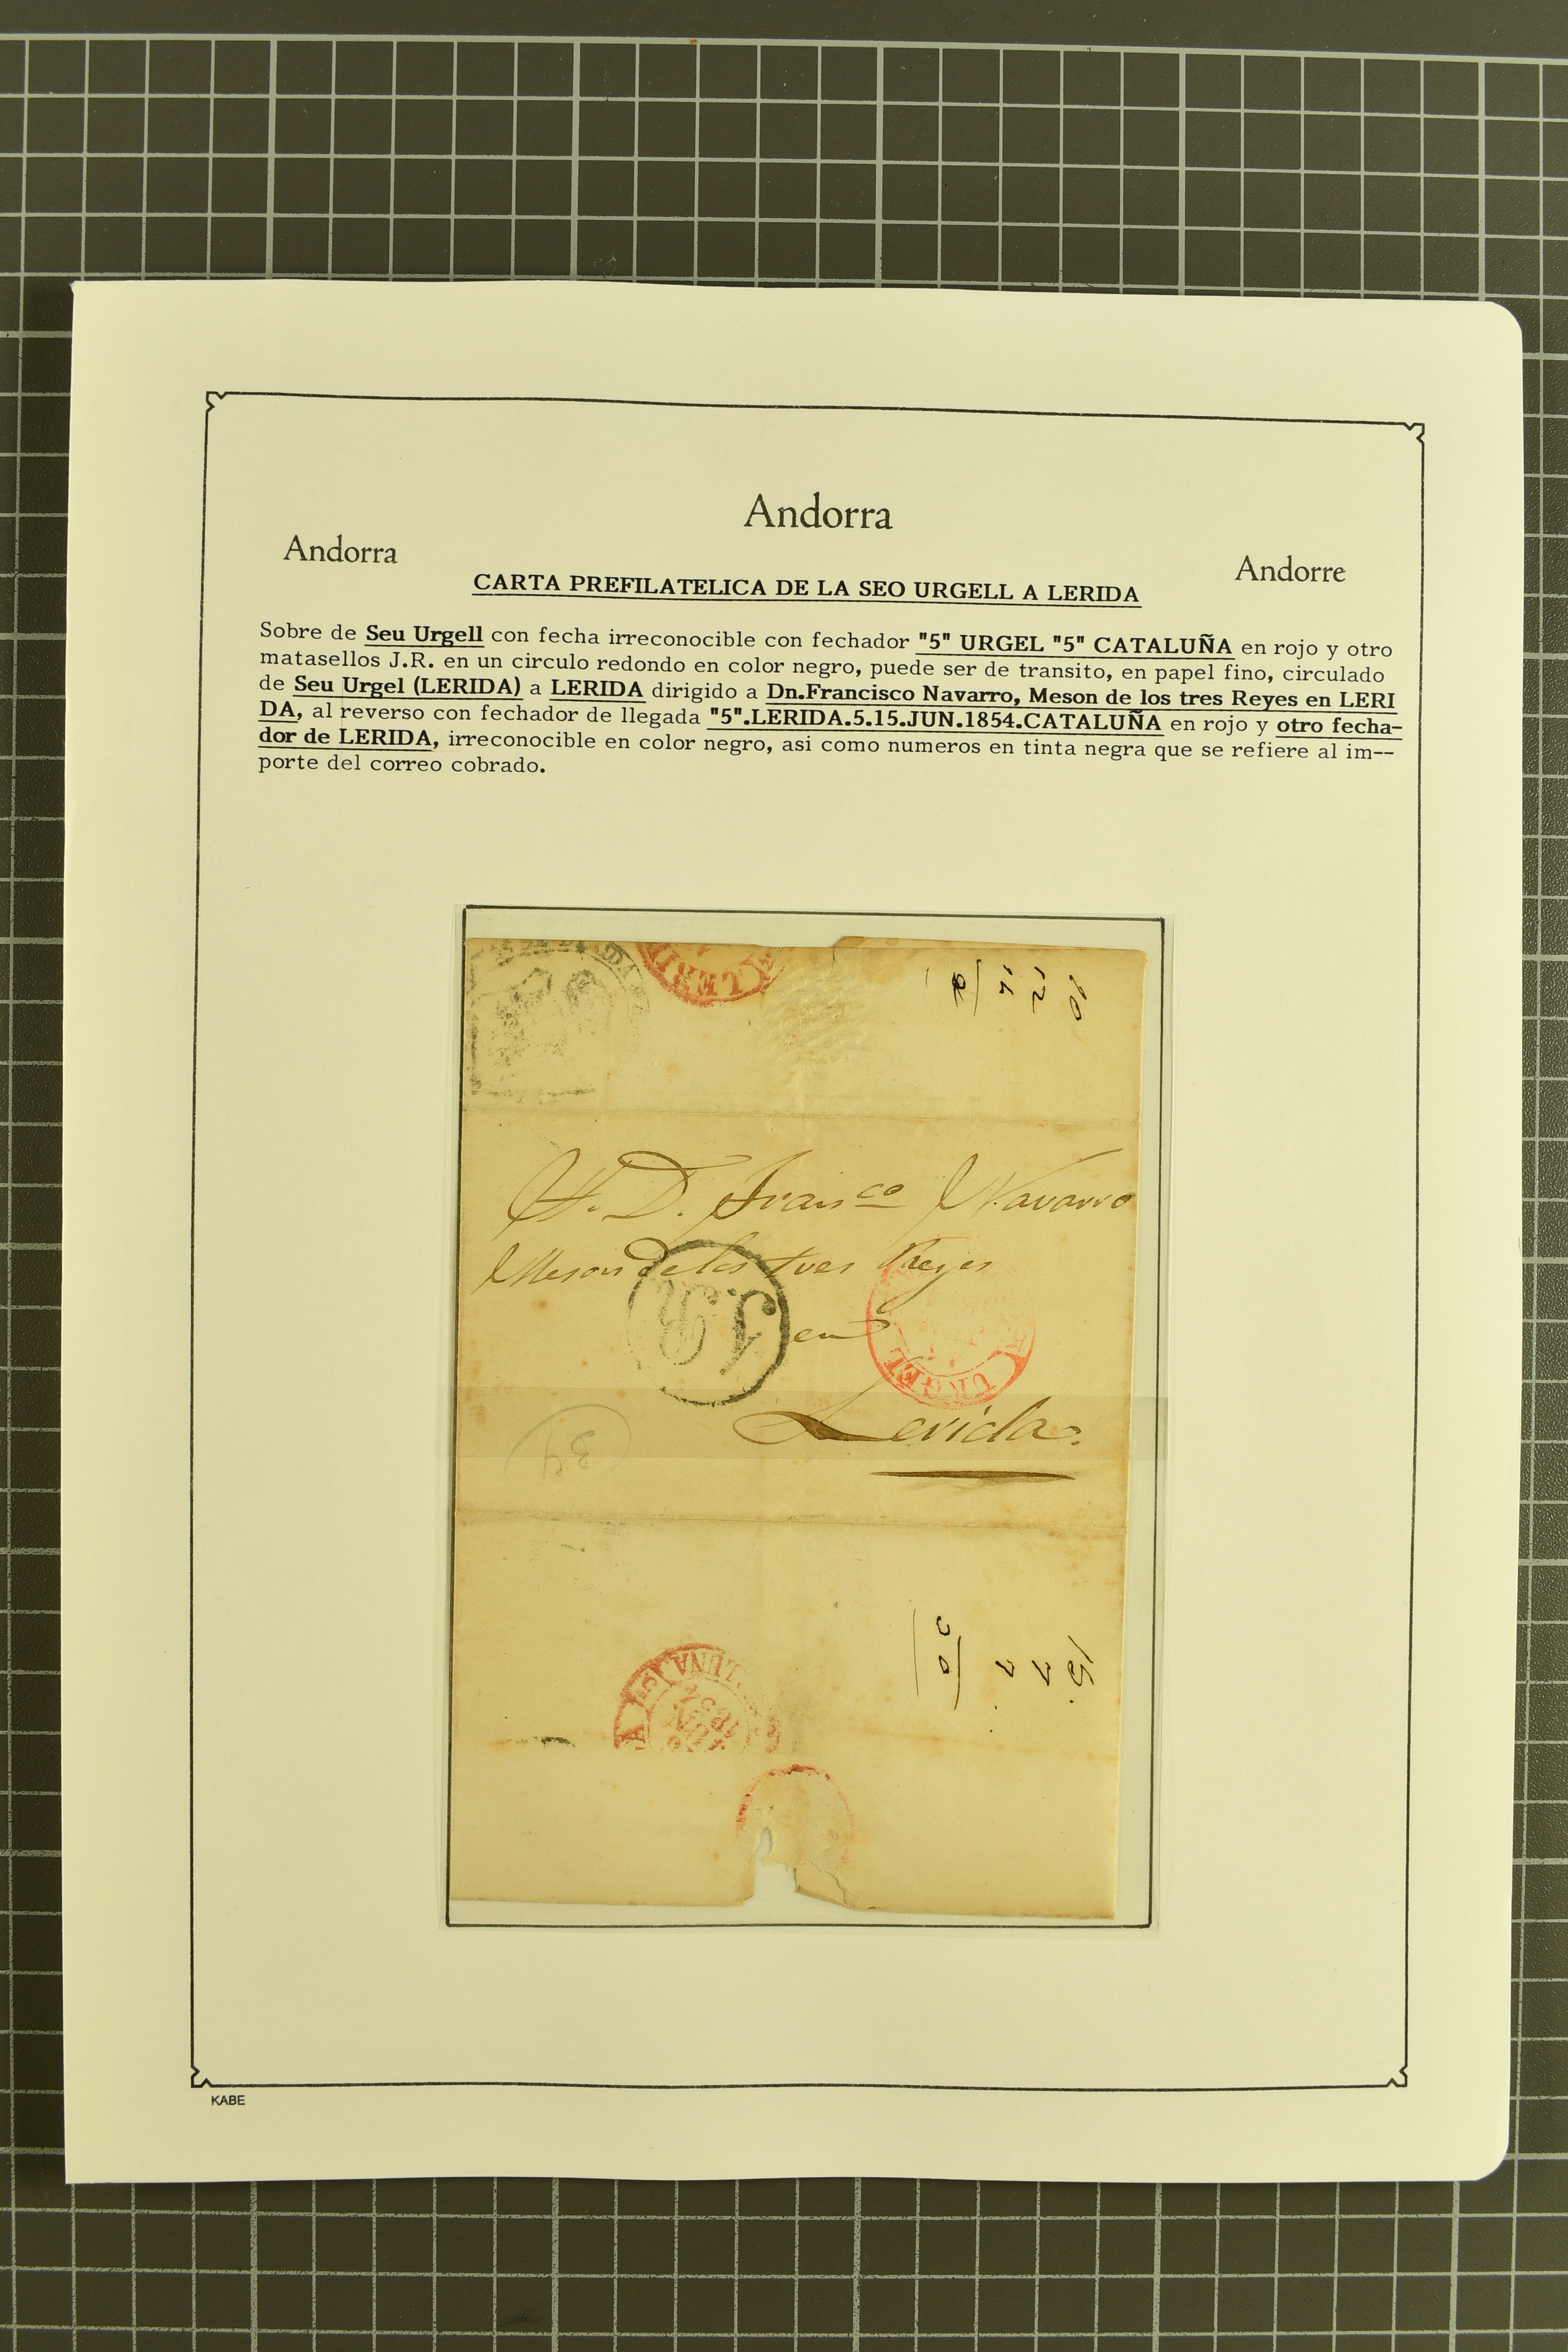 Andorra
Andorra
Andorre
CARTA PREFILATELICA DE LA SEO URGELL A LERIDA
Sobre de Seu Urgell con fecha irreconocible con fechador "5" URGEL "5" CATALUÑA en rojo y otro
matasellos J.R. en un circulo redondo en color negro, puede ser de transito, en papel fino, circulado
de Seu Urgel (LERIDA) a LERIDA dirigido a Dn.Francisco Navarro, Meson de los tres Reyes en LERI
DA, al reverso con fechador de llegada "5".LERIDA.5.15.JUN.1854.CATALUÑA en rojo y otro fecha-
dor de LERIDA, irreconocible en color negro, asi como numeros en tinta negra que se refiere al im--
porte del correo cobrado.
LERI
D. Franco Navarro
Meson de los tres Reyes
J.R
en
URGEL
Lerida.
34
LUÑA
JUN
1854
KABE